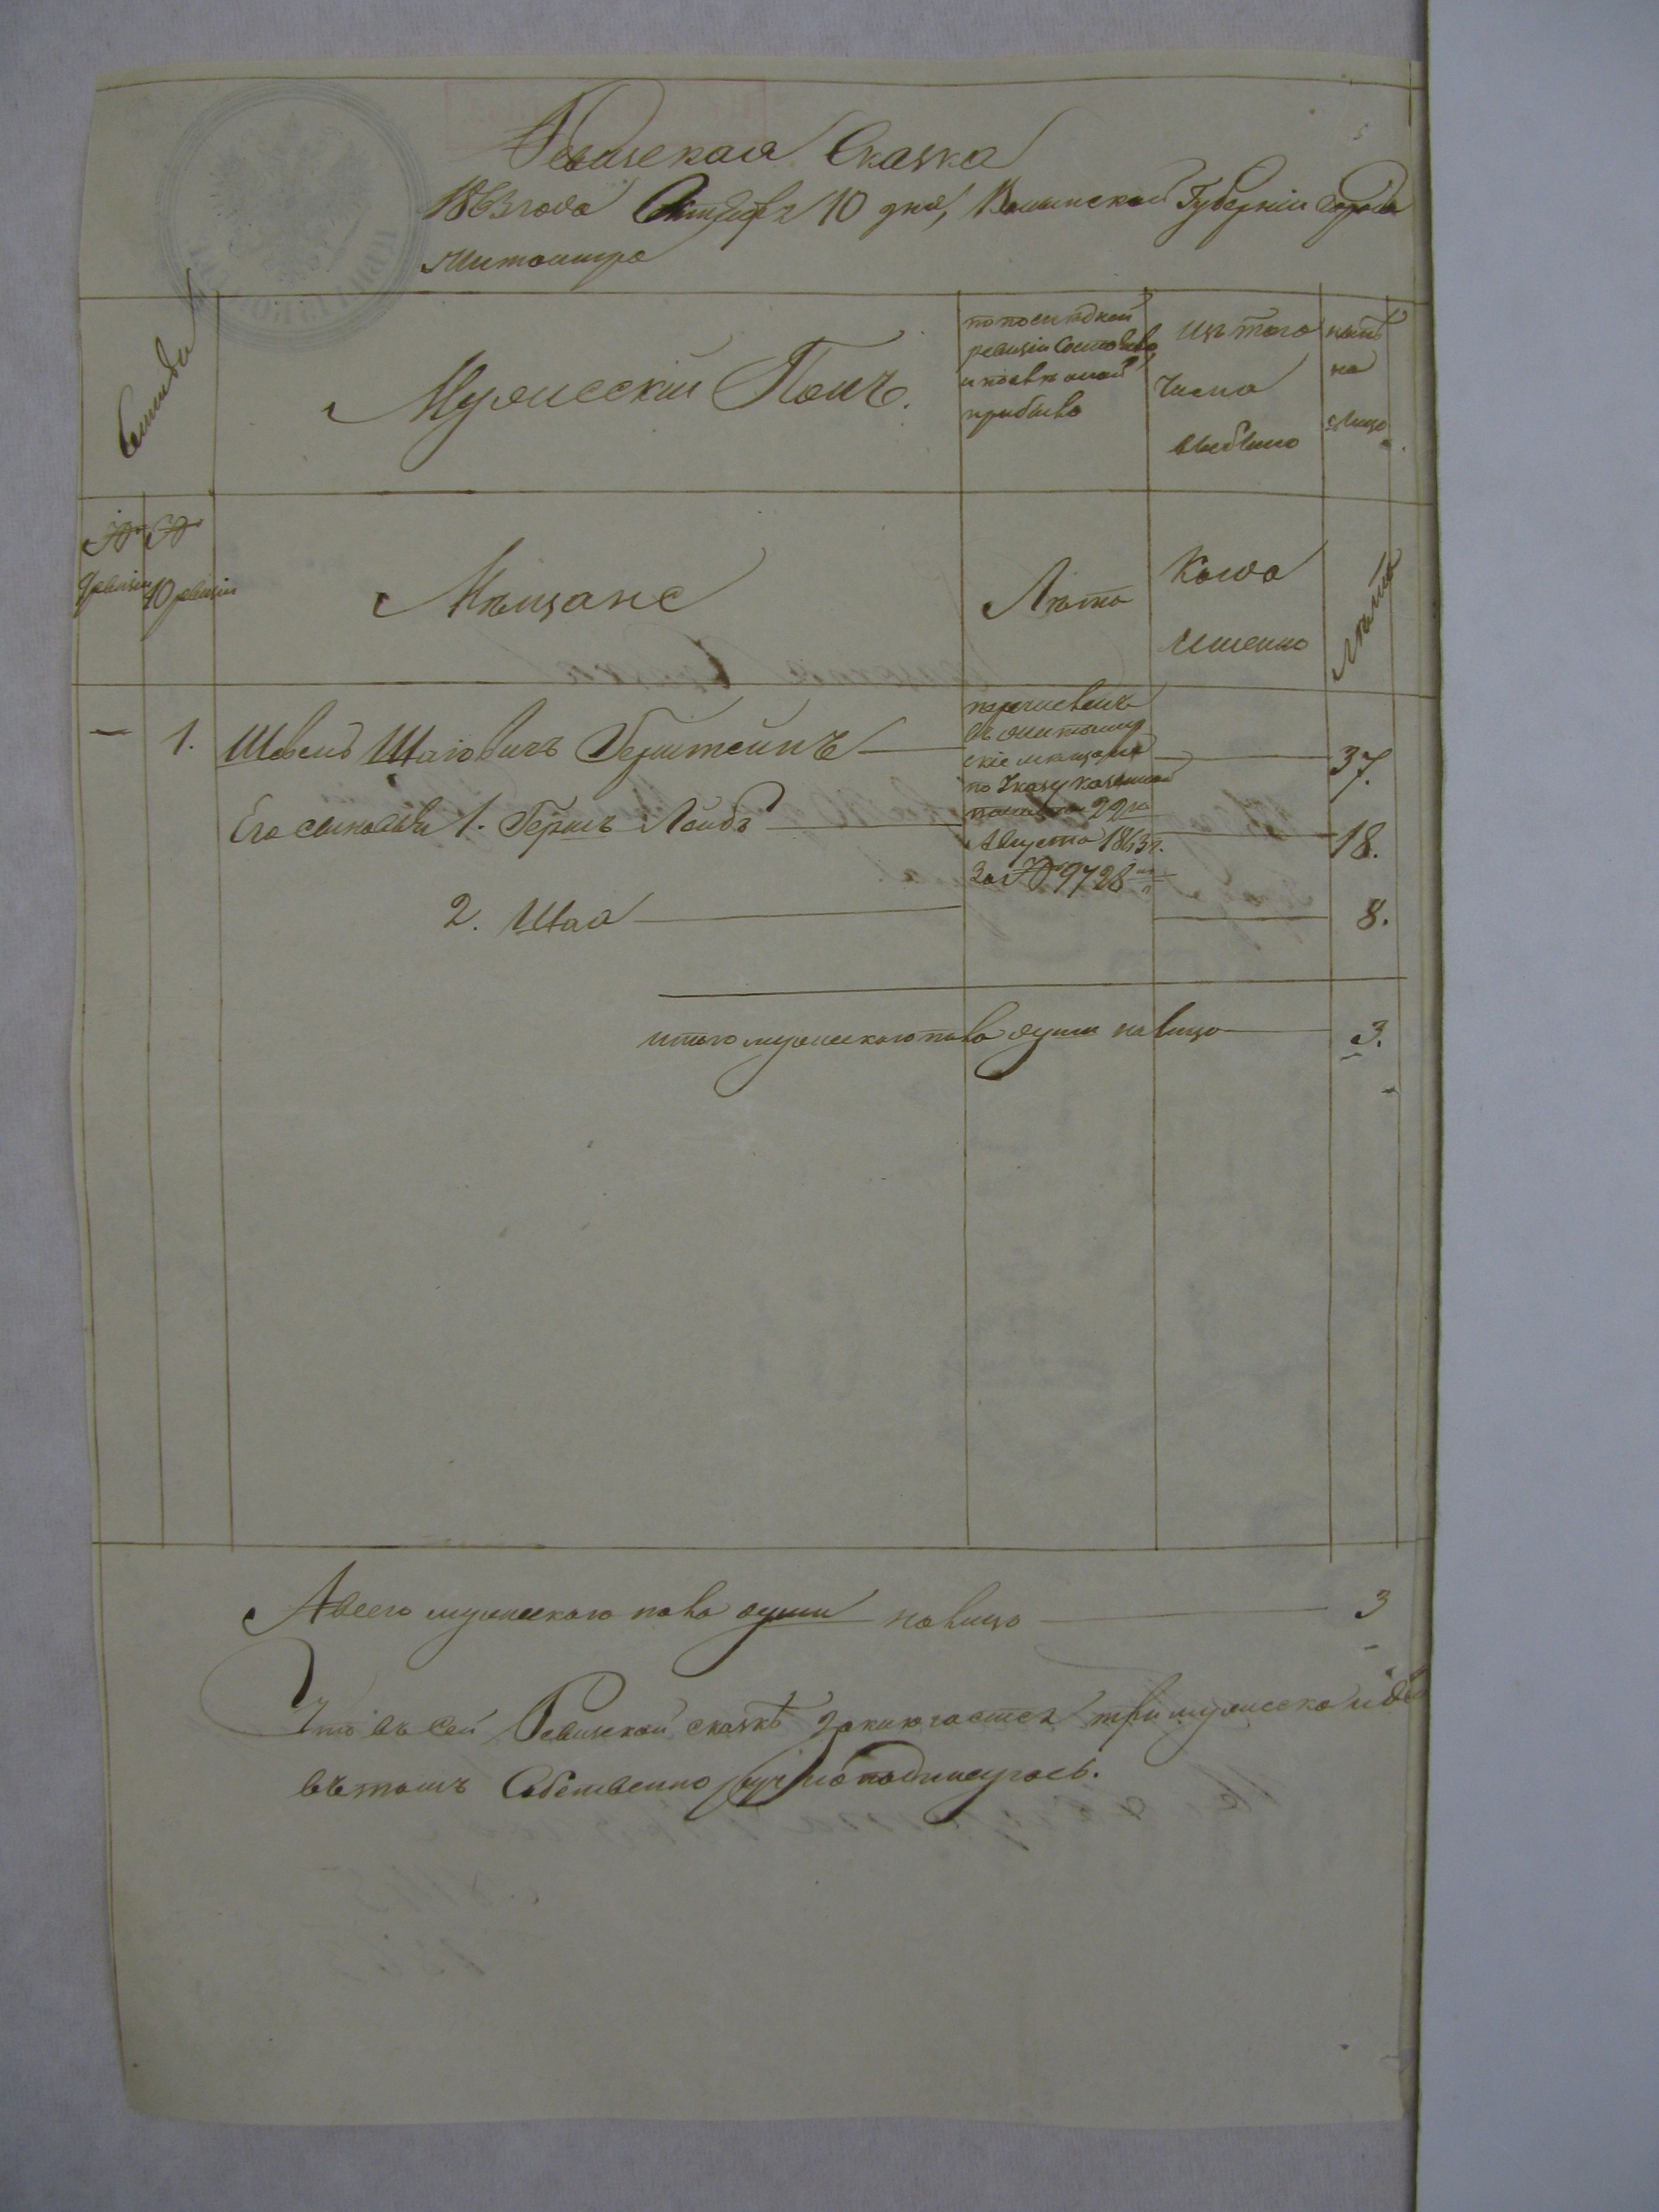 Ревизская Сказка
1863 года Октября 10 дня, Волынской Губерніи города
Житомира
Семьи
Мужескій Полъ.
по последней
ревизіи состояло
и после оной
прибыло
Изъ того
числа
выбыло
ныне
на
лицо
№ №
9 ревизіи 10 ревизіи
Мѣщане
Лѣта
Когда
именно
Лѣта
— 1. Шевель Шаіовичъ Берштейнъ — 37.
перечисленъ
въ житомир
скіе мѣщане
по Указу казенной
палаты 22го
Августа 1863 г.
За № 9728
Его сыновья 1. Гершъ Лейбъ — 18.
2. Шая — 8.
итого мужескаго пола души на лицо — 3.
А всего мужескаго пола души на лицо — 3
Что въ сей Ревизской сказкѣ заключается три мужеска пола
въ томъ Собственно ручно подписуюсь.